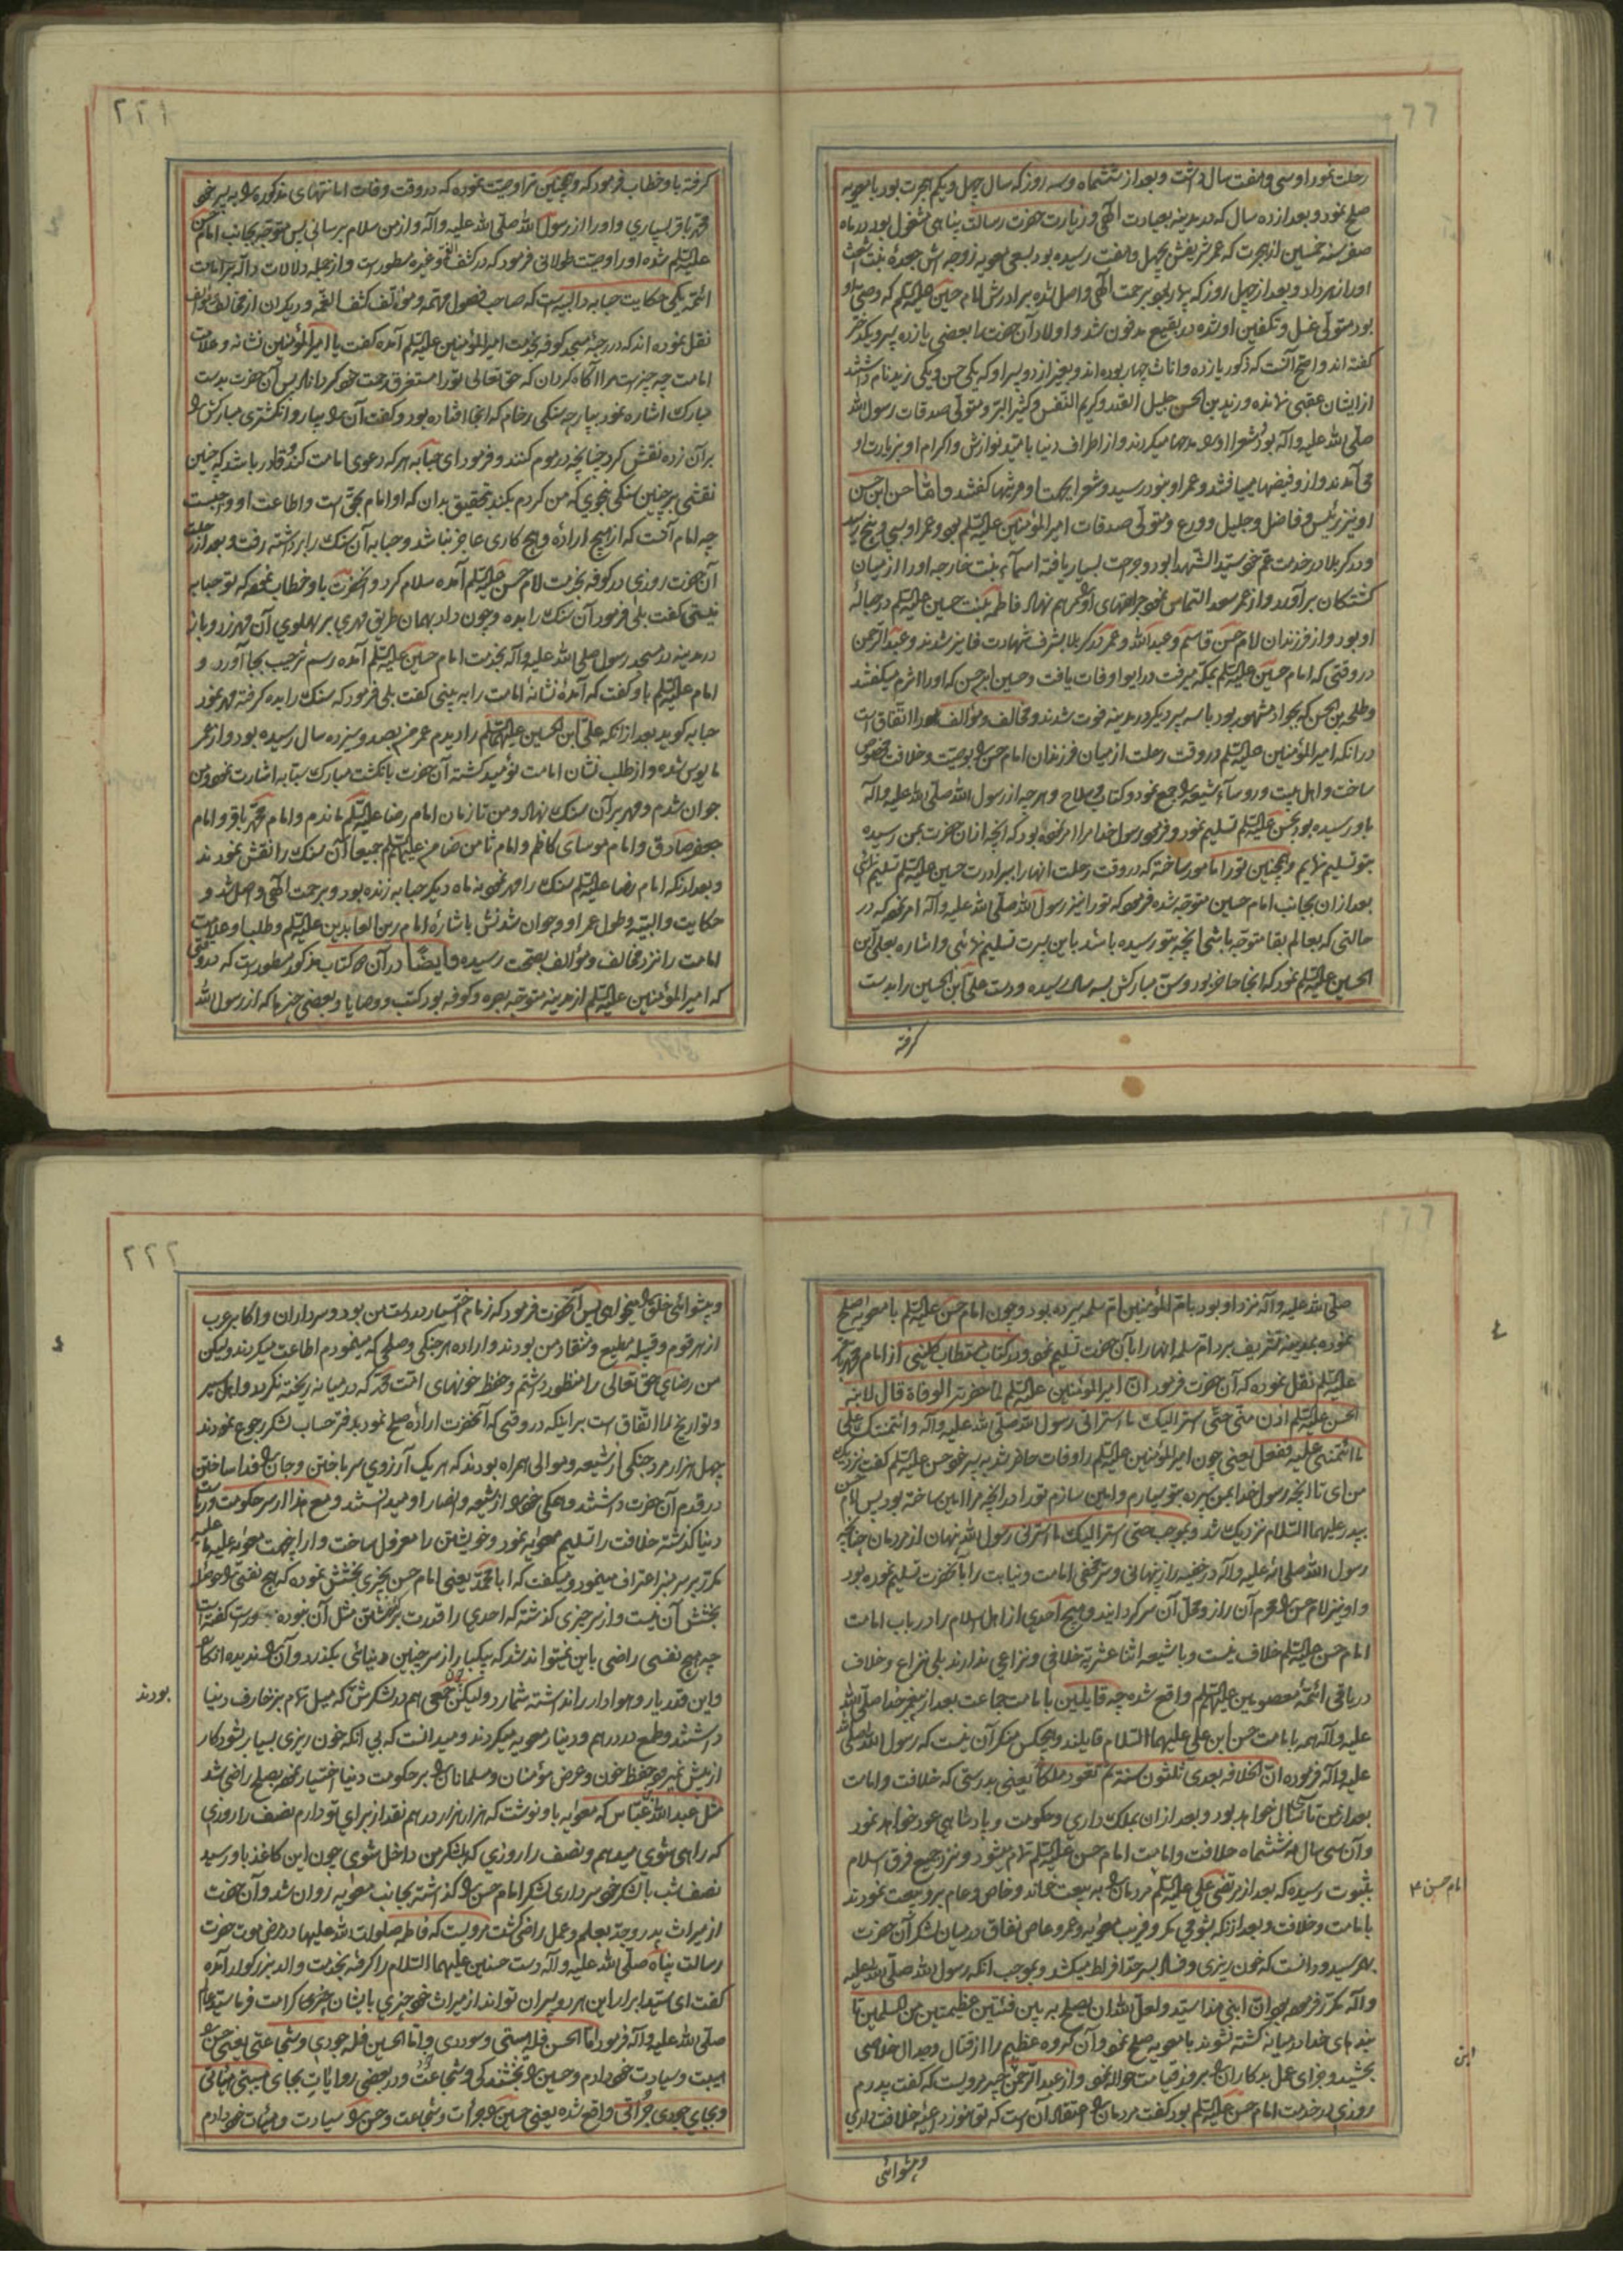 رحلت نمود او سی و هفت سال داشت و بعد از ششماه و سه روز که سال چهل و یکم هجرت بود با معویه
صلح نمود و بعد از ده سال که در مدینه بعبادت الهی و زیارت حضرت رسالت پناهی مشغول بود در ماه
صفر سنه خمسین از هجرت که عمر شریفش بچهل و هفت رسیده بود بسعی معویه زوجه اش جعدۀ بنت اشعث
او را زهر داد و بعد از چهل روز که بیمار بود برحمت الهی واصل شد برادرش امام حسین علیه السّلم که وصی او
بود متولّی غسل و تکفین او شده در بقیع مدفون شد و اولاد آن حضرت را بعضی یازده پسر و یکدختر
گفته اند و اصحّ آنست که ذکور یازده و اناث چهار بوده اند و بغیر از دو پسر او که یکی حسن و یکی زید نام داشتند
از ایشان عقبی نمانده و زید بن الحسن جلیل القدر و کریم النّفس و کثیر البرّ و متولّی صدقات رسول الله
صلّی الله علیه و آله بود و شعرا او را مدحها میکردند و از اطراف دنیا بامّید نوازش و اکرام او بزیارت او
می آمدند و از و فیضها مییافتند و عمر او بنود رسید و شعرا بجهت او مرثیها گفتند و امّا حسن ابن حسن
او نیز رئیس و فاضل و جلیل و ورع و متولّی صدقات امیر المؤمنین علیه السّلم بود و عمر او بسی و پنج رسید
و در کربلا در خدمت عمّ خود سیّد الشهدا بود و جراحت بسیار یافته اسمآء بنت خارجه او را از میان
کشتکان بر آورد و از عمر سعد التماس نموده جراحتهای او را مرهم نهاد فاطمه بنت حسین علیه السّلم در حبالۀ
او بود و از فرزندان امام حسن قاسم و عبد الله و عمر در کربلا بشرف شهادت فایز شدند و عبد الرّحمن
در وقتی که امام حسین علیه السّلم بمکّه میرفت در ابوا وفات یافت و حسین ابن حسن که او را اثرم میگفتند
و طلحه بن الحسن که بجواد مشهور بود با سه پسر دیگر در مدینه فوت شدند و مخالف و مؤالف را اتّفاق است
در آنکه امیر المؤمنین علیه السّلم در وقت رحلت از میان فرزندان امام حسن را بوصیّت و خلافت مخصوص
ساخت و اهل بیت و روسآء شیعه را جمع نمود و کتاب و سلاح و هر چه از رسول الله صلّی الله علیه و آله
باو رسیده بود بحسن علیه السّلم تسلیم نمود و فرمود رسول خدا مرا امر نموده بود که آنچه از آن حضرت بمن رسیده
بتو تسلیم نمایم و همچنین تو را مامور ساخته که در وقت رحلت آنها را ببرادرت حسین علیه السّلم تسلیم نمائی
بعد از آن بجانب امام حسین متوجّه شده فرمود که تو را نیز رسول الله صلّی الله علیه و آله امر نموده که در
حالتی که بعالم بقا متوجّه باشی آنچه بتو رسیده باشد باین پسرت تسلیم نمائی و اشاره بعلی ابن
الحسین علیه السّلم نمود که آنجا حاضر بود و سن مبارکش بسه سالگی رسیده و دست علی ابن الحسین را بدست
گرفته
٢٢١
گرفته باو خطاب فرمود که و همچنین ترا وصیّت نموده که در وقت وفات امانتهای مذکوره را به پسر خود
محمّد باقر بسپاری و او را از رسول الله صلّی الله علیه و آله و از من سلام برسانی پس متوجّه بجانب امام حسن
علیه السّلم شده او را وصیّت طولانی فرمود که در کشف الغمّه و غیره مسطور است و از جمله دلالات داله بر امامت
ائمّه یکی حکایت حبابه والبیه است که صاحب فصول مهمّه و مؤلّف کشف الغمّه و دیگران از مخالف و مؤالف
نقل نموده اند که در رحبۀ مسجد کوفه بخدمت امیر المؤمنین علیه السّلم آمده گفت یا امیر المؤمنین نشانه و علامت
امامت چه چیز است مرا آگاه گردان که حق تعالی تو را مستغرق رحمت خود گرداناد پس آن حضرت بدست
مبارک اشاره نمود بپارچه سنگی رخام که آنجا افتاده بود و گفت آن را بیار و انگشتری مبارکش را
بر آن زده نقش کرد چنانچه در موم کنند و فرمود ای حبابه هر که دعوی امامت کند و قادر باشد که چنین
نقشی بر چنین سنگی بنحوی که من کردم بکند بتحقیق بدان که او امام بحقّ است و اطاعت او واجبست
چه امام آنست که از هیچ اراده و هیچ کاری عاجز نباشد و حبابه آن سنگ را برداشته رفت و بعد از رحلت
آن حضرت روزی در کوفه بخدمت امام حسن علیه السّلم آمده سلام کرد و آنحضرت باو خطاب نمود که تو حبابه
نیستی گفت بلی فرمود آن سنگ را بده و چون داد بهمان طریق مهری بر پهلوی آن مهر زد و باز
در مدینه در مسجد رسول صلی الله علیه و آله بخدمت امام حسین علیه السّلم آمده رسم ترحیب بجا آورد و
امام علیه السّلم باو گفت که آمدۀ نشانۀ امامت را به بینی گفت بلی فرمود که سنگ را بده گرفته مهر نمود
حبابه گوید بعد از آنکه علی ابن الحسین علیهما السّلم را دیدم عمرم بصد و سیزده سال رسیده بود و از عمر
مایوس شده و از طلب نشان امامت نومید گشته آن حضرت بانگشت مبارک سبّابه اشارت نمود و من
جوان شدم و مهر بر آن سنگ نهاد و من تا زمان امام رضا علیه السّلم ماندم و امام محمّد باقر و امام
جعفر صادق و امام موسی کاظم و امام ثامن ضامن علیهم السّلم جمیعا آن سنگ را نقش نمودند
و بعد از آنکه امام رضا علیه السّلم سنگ را مهر نمود نه ماه دیگر حبابه زنده بود و برحمت الهی واصل شد و
حکایت والبیّه و طول عمر او و جوان شدنش باشارۀ امام زین العابدین علیه السّلم و طلب او علامت
امامت را نزد مخالف و مؤالف بصحّت رسیده و ایضًا در آن کتاب مذکور مسطور است که در وقتی
که امیر المؤمنین علیه السّلم از مدینه متوجّه بصره و کوفه بود کتب و وصایا و بعضی چیزها که از رسول الله
صلّی الله علیه و آله نزد او بود بامّ المؤمنین امّ سلمه سپرده بود و چون امام حسن علیه السّلم با معویه صلح
نموده بمدینه تشریف برد امّ سلمه آنها را بآن حضرت تسلیم نمود و در کتاب مستطاب کلینی از امام محمّد باقر
علیه السّلم نقل نموده که آن حضرت فرمود انّ امیر المؤمنین علیه السّلم لمّا حضرته الوفاة قال لابنه
الحسن علیه السّلم ادن منّی حتّی اسرّ الیک ما اسرّ الیّ رسول الله صلی الله علیه و آله و ائتمنک علی
ما ائتمننی علیه ففعل یعنی چون امیر المؤمنین علیه السّلم را وفات حاضر شد به پسر خود حسن علیه السّلم گفت نزدیک
من آی تا آنچه رسول خدا بمن سپرده بتو سپارم و امین سازم تو را در آنچه مرا امین ساخته بود پس امام حسن
بپدر علیهما السّلام نزدیک شد و بموجب حتی اسرّ الیک ما اسرّ الیّ رسول الله پنهان از مردمان چنانچه
رسول الله صلی الله علیه و آله در خفیه راز پنهانی و سرّ مخفی امامت و نیابت را بآنحضرت تسلیم نموده بود
و او نیز امام حسن را محرم آن راز و محلّ آن سرّ گردانید و هیچ احدی از اهل اسلام را در باب امامت
امام حسن علیه السّلم خلاف نیست و با شیعه اثنا عشریه خلافی و نزاعی ندارند بلی نزاع و خلاف
در باقی ائمّه معصومین علیهم السّلم واقع شده چه قایلین بامامت جماعت بعد از پیغمبر خدا صلّی الله
علیه و آله همه بامامت حسن ابن علی علیهما السّلام قایلند و هیچکس منکر آن نیست که رسول الله صلّی الله
علیه و آله فرموده انّ الخلافه بعدی ثلثون سنة ثمّ تعود ملکا یعنی بدرستی که خلافت و امامت
بعد از من تا سی سال خواهد بود و بعد از آن بملک داری و حکومت و پادشاهی عود خواهد نمود
و آن سی سال بششماه خلافت و امامت امام حسن علیه السّلم تمام میشود و نزد جمیع فرق اسلام
بثبوت رسیده که بعد از مرتضی علی علیه السّلم مردمان را به بیعت خواند و خاص و عام برو بیعت نمودند
امام حسن ۴
بامامت و خلافت و بعد از آنکه بشومی مکر و فریب معویه و عمرو عاص نفاق در میان لشکر آن حضرت
بهم رسید و دانست که خون ریزی و فساد بسرحدّ افراط میکشد و بموجب آنکه رسول الله صلّی الله علیه
و آله مکرّر فرموده بود انّ ابنی هذا سیّد و لعلّ الله ان یصلح به بین فئتین عظیمتین من المسلمین تا
بندهای خدا در میانه کشته نشوند با معویه صلح نمود و آن گروه عظیم را از قتال و جدال خلاصی
بخشید و جزای عمل بدکاران را بروز قیامت حواله نمود و از عبد الرّحمن جبیر مرویست که گفت پدرم
ابن
روزی در خدمت امام حسن علیه السّلم بود گفت مردمان را اعتقاد آن است که تو هنوز داعیۀ خلافت داری
و پیشوائی
٢٢٢
و پیشوائی خلق را میخواهی پس آنحضرت فرمود که زمام اختیار در دست من بود و سرداران و اکابر عرب
از هر قوم و قبیله مطیع و منقاد من بودند و اراده هر جنگی و صلحی که مینمودم اطاعت میکردند و لیکن
من رضای حق تعالی را منظور داشتم و حفظ خونهای امّت محمّد که در میانه ریخته نگردد و اهل سیر
و تواریخ را اتّفاق است بر اینکه در وقتی که آنحضرت ارادۀ صلح نمود بدفتر حساب لشکر رجوع نمودند
چهل هزار مرد جنگی از شیعه و موالی همراه بودند که هر یک آرزوی سر باختن و جان را فدا ساختن
در قدم آن حضرت داشتند و همگی خود را از شیعه و انصار او میدانستند و مع هذا از سر حکومت و ریاست
دنیا گذشته خلافت را تسلیم معویه نمود و خویشتن را معزول ساخت و از اینجهت معویه علیه ما علیه
مکرّر بر سر منبر اعتراف مینمود و میگفت که ابا محمّد یعنی امام حسن بچیزی بخشش نموده که هیچ نفسی را حوصله
بخشش آن نیست و از سر چیزی گذشته که احدی را قدرت گذشتن مثل آن نبوده و راست گفته است
چه هیچ نفسی راضی باین نمیتواند شد که بیکبار از سر چنین دنیائی بگذرد و آن را ندیده انگارد
و این قدر یار و هوادار را نداشته شمارد و لیکن چون جمعی هم در لشکرش که میل تمام بزخارف دنیا
بودند
داشتند و طمع در درهم و دینار معویه میکردند و میدانست که بی آنکه خون ریزی بسیار بشود کار
از پیش نمیرود حفظ خون و عرض مؤمنان و مسلمانان را بر حکومت دنیا اختیار نموده بصلح راضی شد
مثل عبد الله عبّاس که معویه باو نوشت که هزار هزار درهم نقد از برای تو دارم نصف را روزی
که راهی شوی میدهم و نصف را روزی که بلشکر من داخل شوی چون این کاغذ باو رسید
نصف شب با لشکر خود سرداری لشکر امام حسن را گذاشته بجانب معویه روان شد و آن حضرت
از میراث پدر و جدّ بعلم و عمل راضی گشت مرویست که فاطمه صلوات الله علیها در مرض موت حضرت
رسالت پناه صلّی الله علیه و آله دست حسنین علیهما السّلام را گرفته بخدمت والد بزرگوار آمده
گفت ای سیّد ابرار این هر دو پسران تواند از میراث خود چیزی بایشان کرامت فرما سیّد عالم
صلّی الله علیه و آله فرمود امّا الحسن فله هیبتی و سوددی و امّا الحسین فله جودی و شجاعتی یعنی حسن را
هیبت و سیادت خود دادم و حسین را بخشندگی و شجاعت و در بعضی روایات بجای هیبتی
و بجای جودی جرأتی واقع شده یعنی حسین را جرأت و شجاعت و حسن را سیادت و هیأت خود دادم